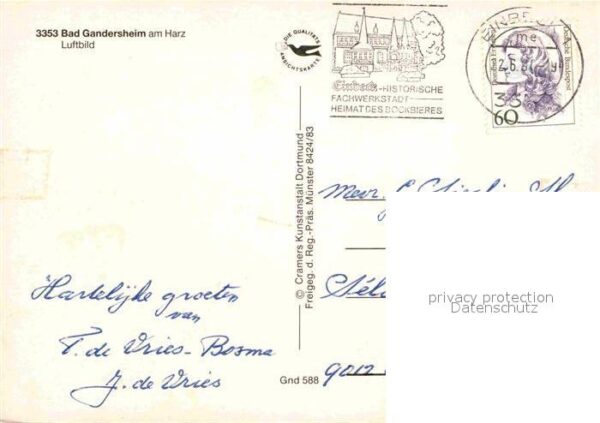 3353 Bad Gandersheim am Harz
Luftbild
DIE QUALITÄTS
ANSICHTSKARTE
Einbeck-HISTORISCHE
FACHWERKSTADT
HEIMAT DES BOCKBIERES
EINBECK
Deutsche Bundespost
60
© Cramers Kunstanstalt Dortmund
Freigeg. d. Reg.-Präs. Münster 8424/83
Mevr.
Hartelijke groeten
van
T. de Vries-Bosma
J. de Vries
9012
Gnd 588
privacy protection
Datenschutz